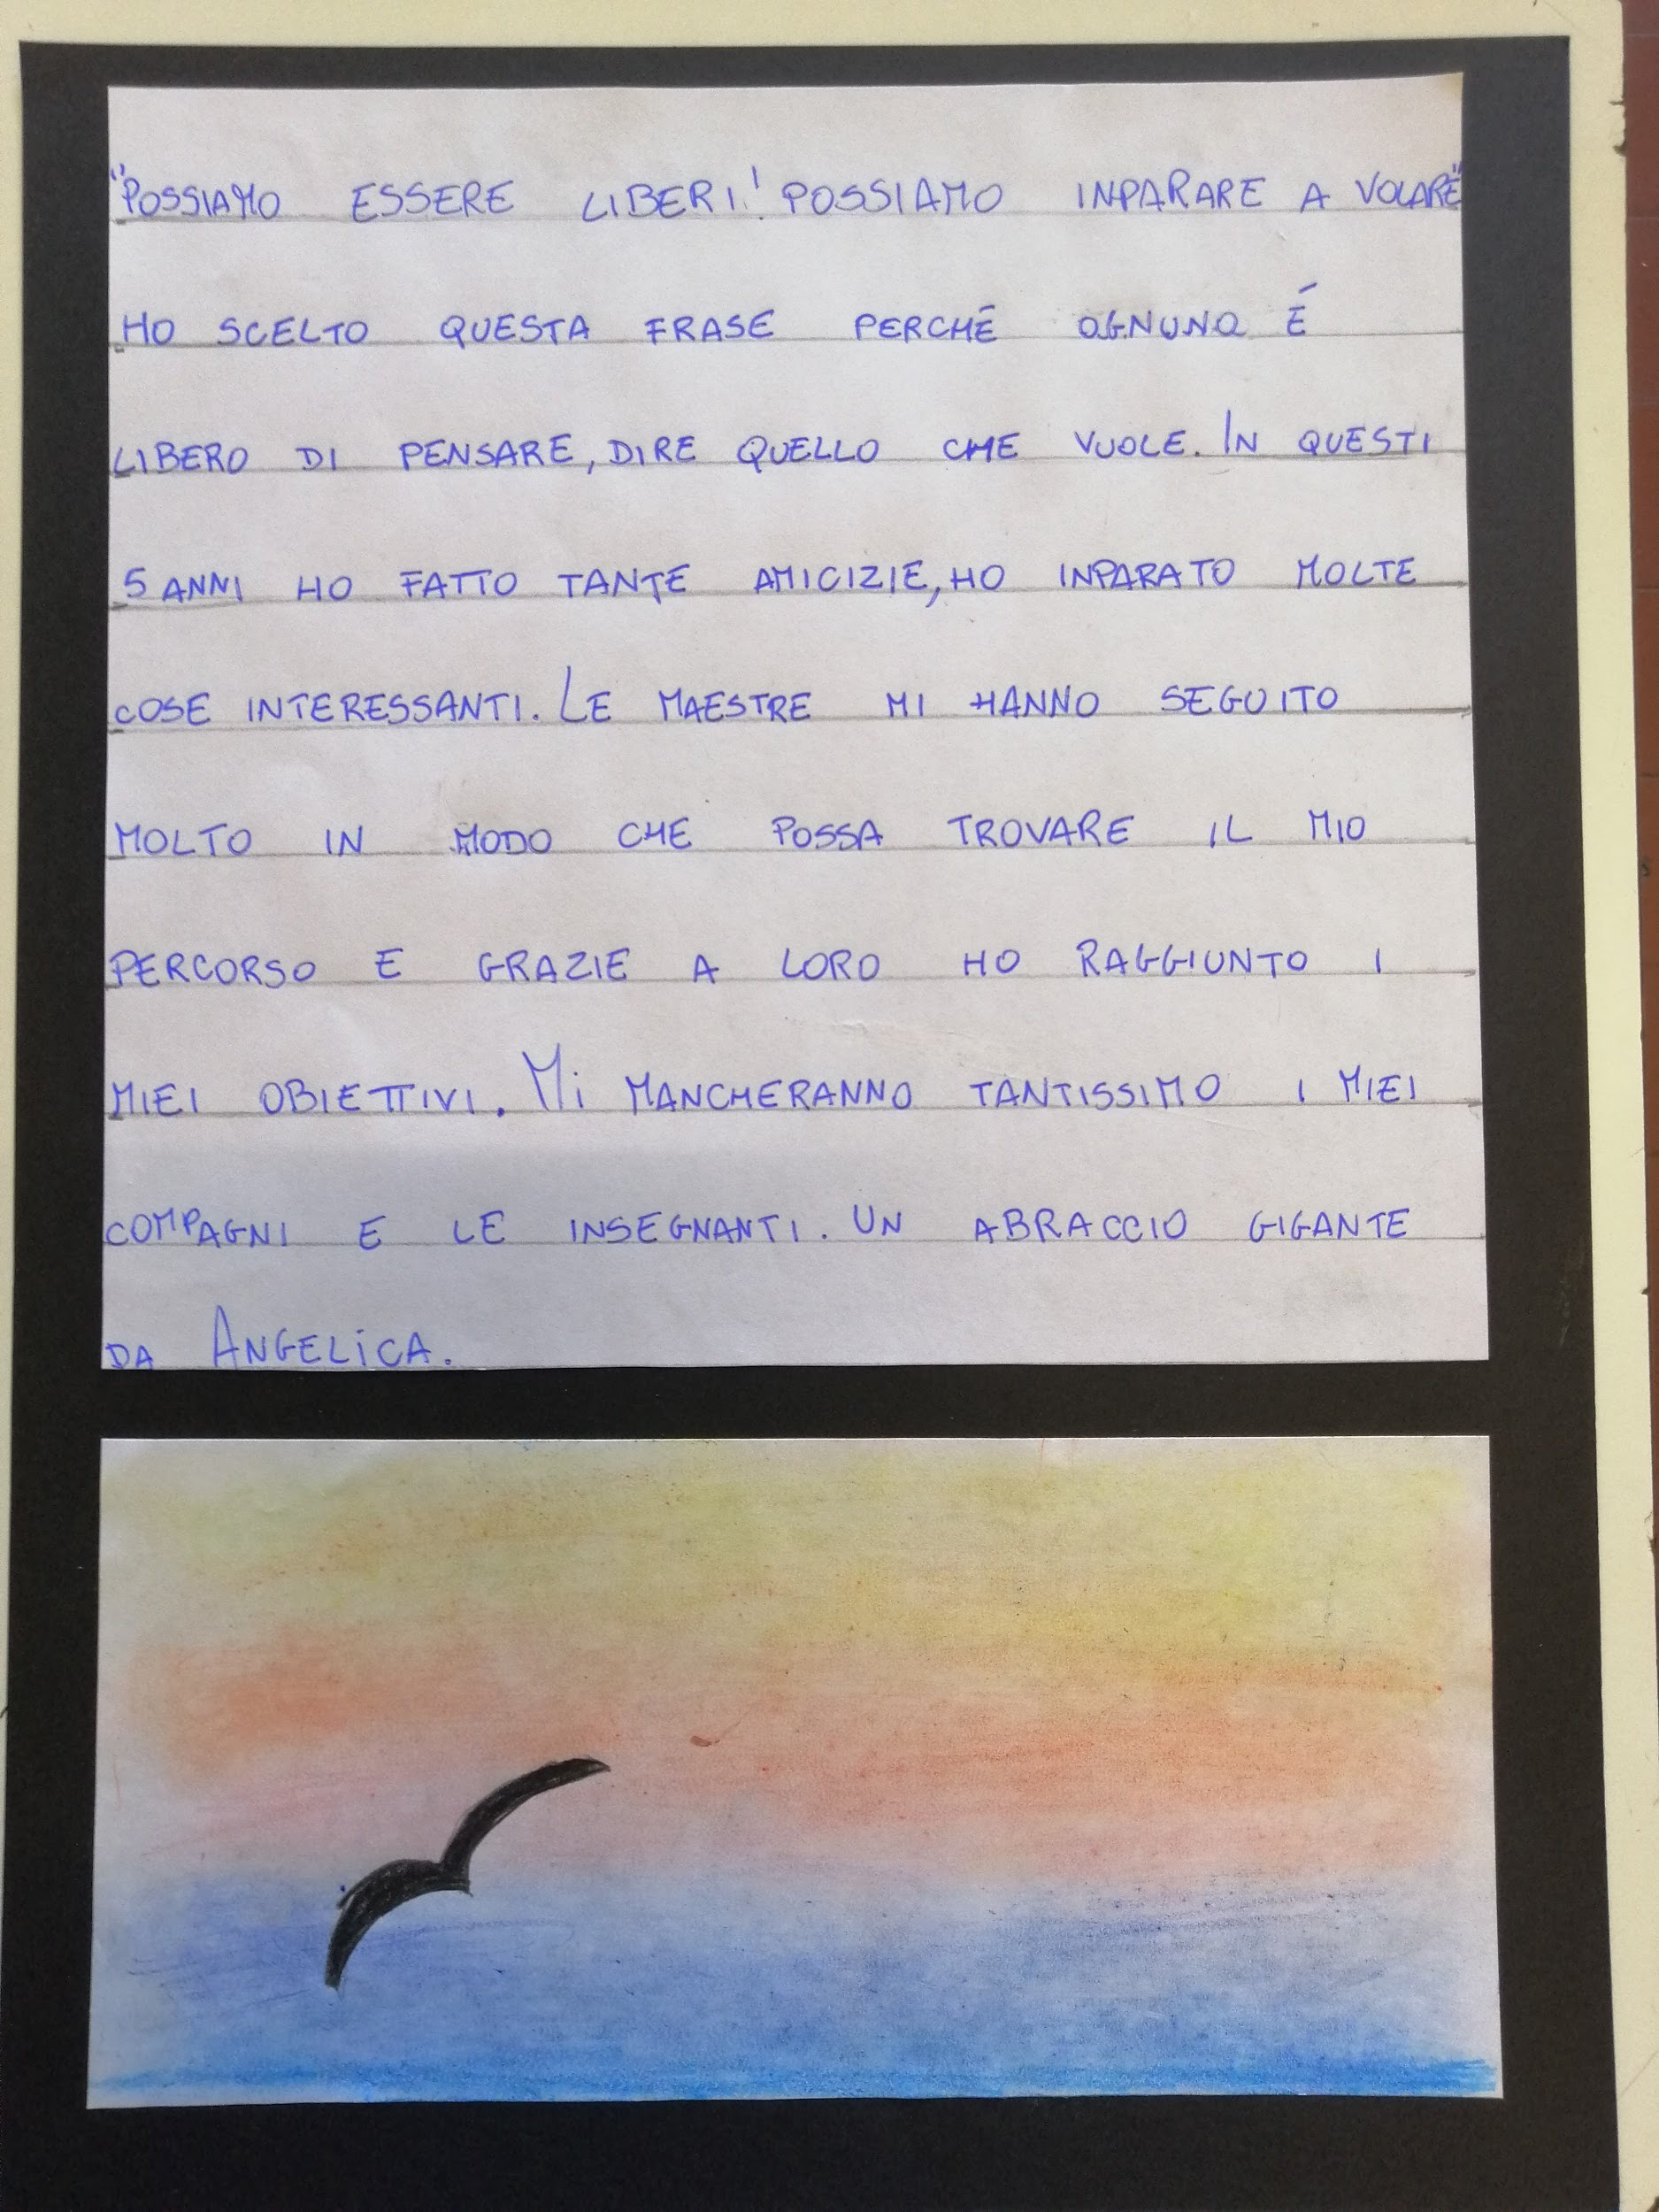 "POSSIAMO ESSERE LIBERI! POSSIAMO INPARARE A VOLARE"
HO SCELTO QUESTA FRASE PERCHÉ OGNUNO É
LIBERO DI PENSARE, DIRE QUELLO CHE VUOLE. IN QUESTI
5 ANNI HO FATTO TANTE AMICIZIE, HO INPARATO MOLTE
COSE INTERESSANTI. LE MAESTRE MI HANNO SEGUITO
MOLTO IN MODO CHE POSSA TROVARE IL MIO
PERCORSO E GRAZIE A LORO HO RAGGIUNTO I
MIEI OBIETTIVI. Mi MANCHERANNO TANTISSIMO I MIEI
COMPAGNI E LE INSEGNANTI. UN ABRACCIO GIGANTE
DA ANGELiCA.